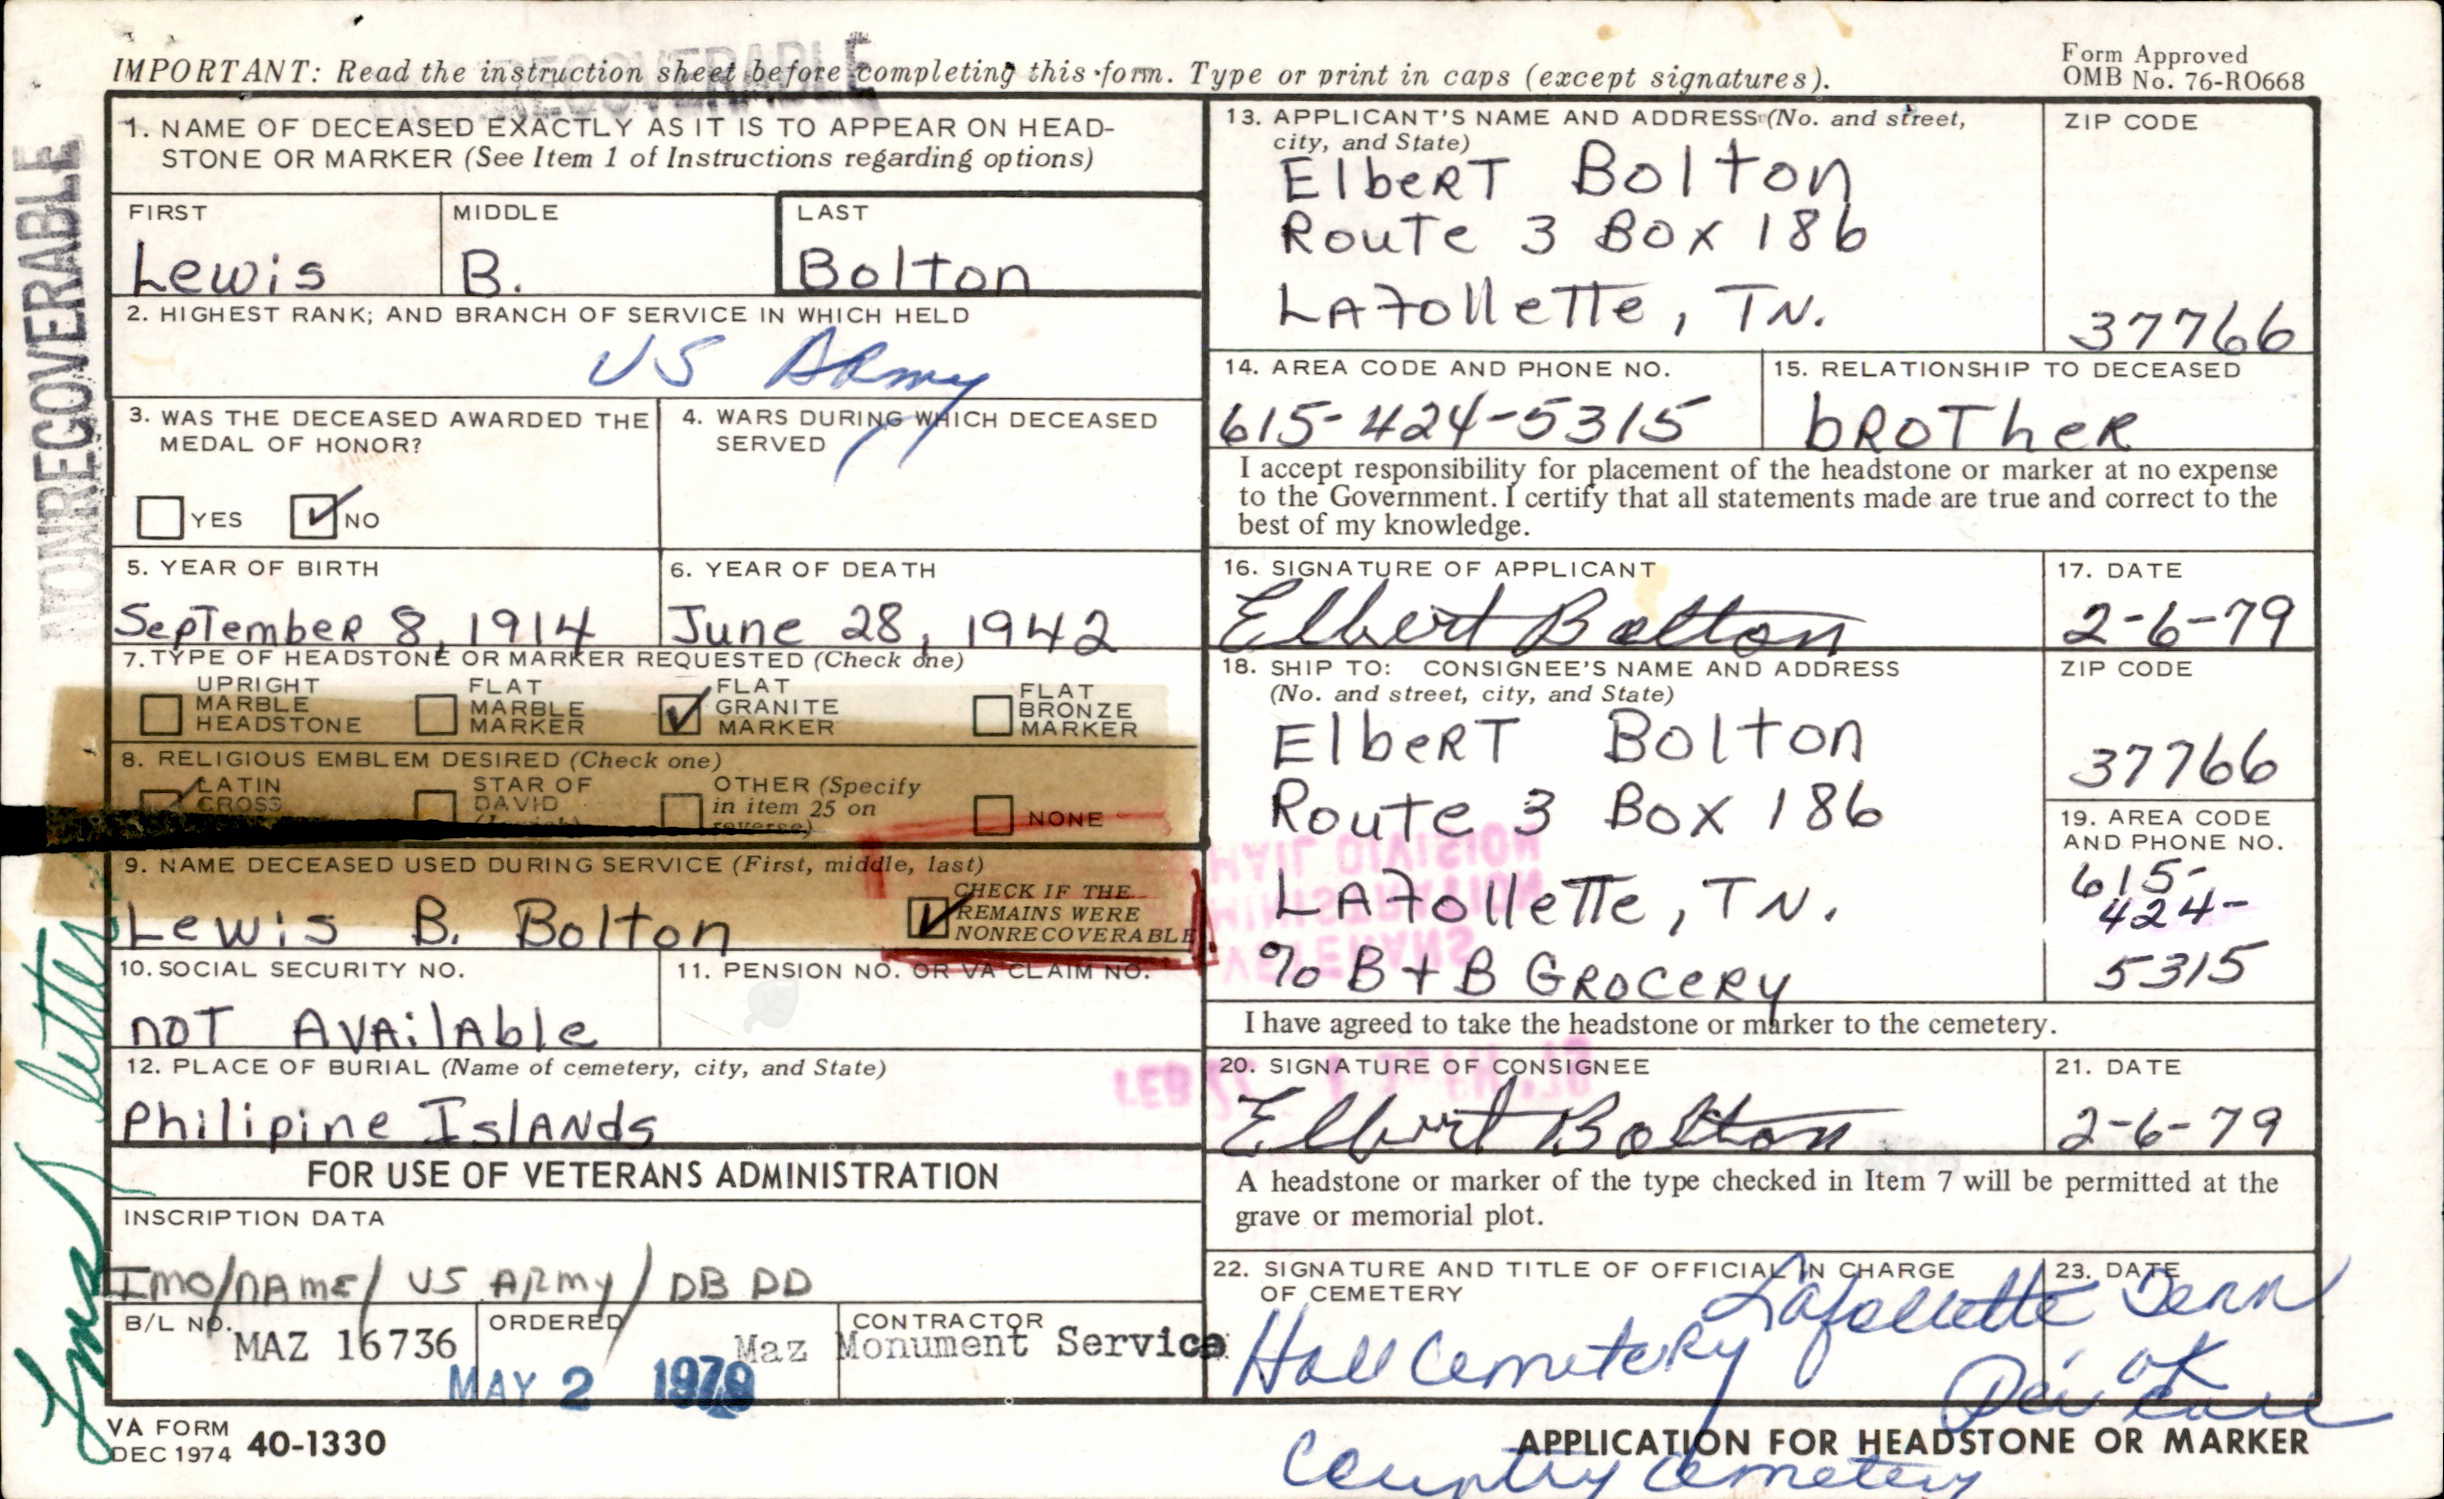 NONRECOVERABLE
IMPORTANT: Read the instruction sheet before completing this form. Type or print in caps (except signatures).
Form Approved
OMB No. 76-RO668
NONRECOVERABLE
1. NAME OF DECEASED EXACTLY AS IT IS TO APPEAR ON HEAD-
STONE OR MARKER (See Item 1 of Instructions regarding options)
FIRST
Lewis
MIDDLE
B.
LAST
Bolton
2. HIGHEST RANK; AND BRANCH OF SERVICE IN WHICH HELD
US ARmy
3. WAS THE DECEASED AWARDED THE
MEDAL OF HONOR?
YES
NO
4. WARS DURING WHICH DECEASED
SERVED
5. YEAR OF BIRTH
September 8, 1914
6. YEAR OF DEATH
June 28, 1942
7. TYPE OF HEADSTONE OR MARKER REQUESTED (Check one)
UPRIGHT
MARBLE
HEADSTONE
FLAT
MARBLE
MARKER
FLAT
GRANITE
MARKER
FLAT
BRONZE
MARKER
8. RELIGIOUS EMBLEM DESIRED (Check one)
LATIN
CROSS
STAR OF
DAVID
OTHER (Specify
in item 25 on
reverse)
NONE
9. NAME DECEASED USED DURING SERVICE (First, middle, last)
Lewis B. Bolton
CHECK IF THE
REMAINS WERE
NONRECOVERABLE
10. SOCIAL SECURITY NO.
not Available
11. PENSION NO. OR VA CLAIM NO.
12. PLACE OF BURIAL (Name of cemetery, city, and State)
Philipine Islands
FOR USE OF VETERANS ADMINISTRATION
INSCRIPTION DATA
Imo/name/ US Army/ DB DD
B/L NO.
MAZ 16736
ORDERED
MAY 2 1979
CONTRACTOR
Maz Monument Service
VA FORM
DEC 1974 40-1330
letter
13. APPLICANT'S NAME AND ADDRESS (No. and street,
city, and State)
Elbert Bolton
Route 3 Box 186
Lafollette, TN.
ZIP CODE
37766
14. AREA CODE AND PHONE NO.
615-424-5315
15. RELATIONSHIP TO DECEASED
brother
I accept responsibility for placement of the headstone or marker at no expense
to the Government. I certify that all statements made are true and correct to the
best of my knowledge.
16. SIGNATURE OF APPLICANT
Elbert Bolton
17. DATE
2-6-79
18. SHIP TO: CONSIGNEE'S NAME AND ADDRESS
(No. and street, city, and State)
Elbert Bolton
Route 3 Box 186
Lafollette, TN.
% B + B Grocery
ZIP CODE
37766
19. AREA CODE
AND PHONE NO.
615-
424-
5315
MAIL DIVISION
VETERANS
I have agreed to take the headstone or marker to the cemetery.
20. SIGNATURE OF CONSIGNEE
Elbert Bolton
21. DATE
2-6-79
A headstone or marker of the type checked in Item 7 will be permitted at the
grave or memorial plot.
22. SIGNATURE AND TITLE OF OFFICIAL IN CHARGE
OF CEMETERY
23. DATE
Lafollette Tenn
Hall Cemetery
OK
Country Cemetery
APPLICATION FOR HEADSTONE OR MARKER